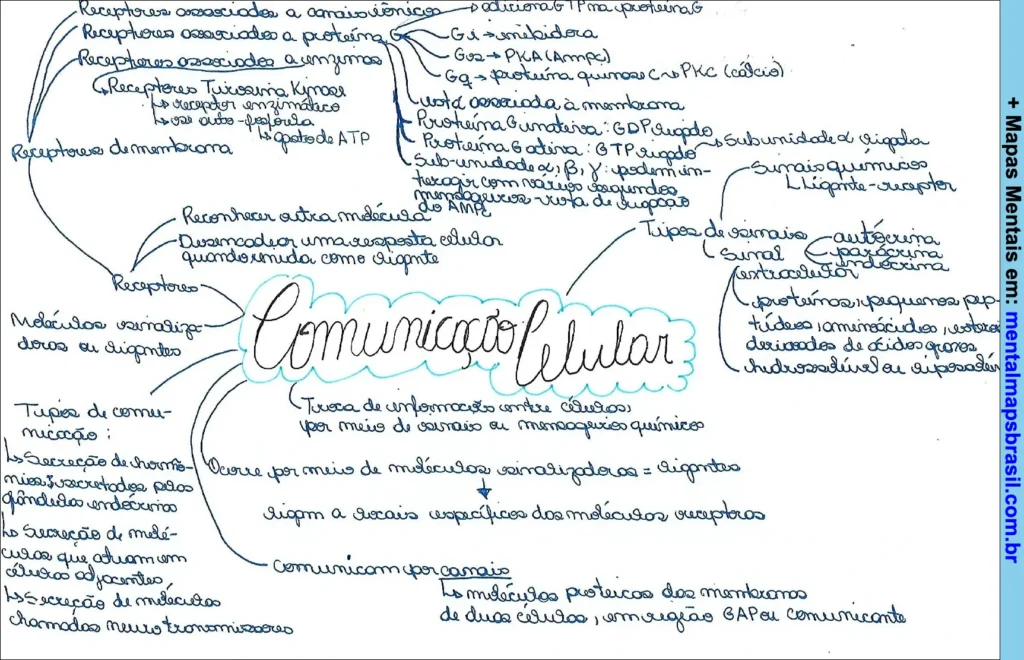 Receptores associados a canais iônicos
Receptores associados a proteína G
→ adiciona GTP na proteína G
Gi → inibidora
Gs → PKA (Ampc)
Gq → proteína quinase C → PKC (cálcio)
rota associada à membrana
Proteína G inativa: GDP ligado
Proteína G ativa: GTP ligado → Subunidade α ligada
Sub-unidade α, β, γ: podem in-
teragir com vários segundos
mensageiros - rota de ligação
do AMPc
Receptores associados a enzimas
↳ Receptores Tirosina Kinase
↳ receptor enzimático
↳ se auto-fosforila
↳ gasto de ATP
Receptores de membrana
Reconhecer outra molécula
Desencadear uma resposta celular
quando unida com o ligante
Receptores
Moléculas sinaliza-
doras ou ligantes
Tipos de sinais
Sinais químicos
Ligante-receptor
Sinal
extracelular
autócrina
parácrina
endócrina
proteínas, pequenos pep-
tídeos, aminoácidos,
derivados de ácidos graxos
hidrossolúvel ou
Comunicação Celular
Troca de informação entre células,
por meio de sinais ou mensageiros químicos
Ocorre por meio de moléculas sinalizadoras = ligantes
ligam a locais específicos das moléculas receptoras
comunicam por canais
↳ moléculas proteicas das membranas
de duas células, em região GAP ou comunicante
Tipos de comu-
nicação:
↳ Secreção de hormô-
nios: secretados pelas
glândulas endócrinas
↳ Secreção de molé-
culas que atuam em
células adjacentes
↳ Secreção de moléculas
chamadas neurotransmissores
+ Mapas Mentais em: mentalmapsbrasil.com.br